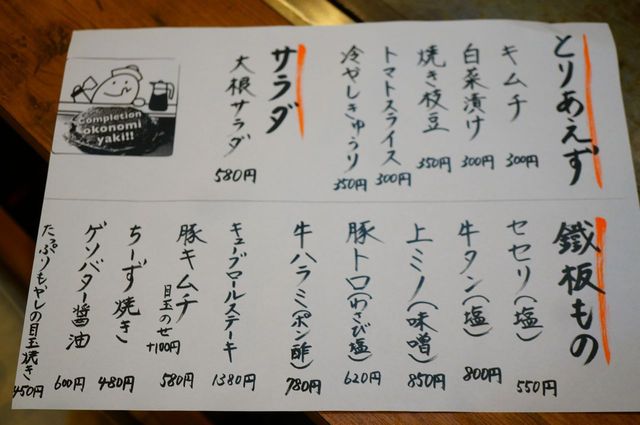 とりあえず
キムチ 300円
白菜漬け 300円
焼き枝豆 350円
トマトスライス 300円
冷やしきゅうり 350円
サラダ
大根サラダ 580円
Completion
okonomi
yaki!!
鐵板もの
セセリ(塩) 550円
牛タン(塩) 800円
上ミノ(味噌) 850円
豚トロ(わさび塩) 620円
牛ハラミ(ポン酢) 780円
キューブロールステーキ 1380円
豚キムチ 580円
目玉のせ +100円
ちーず焼き 480円
ゲソバター醤油 600円
たっぷりもやしの目玉焼き 450円